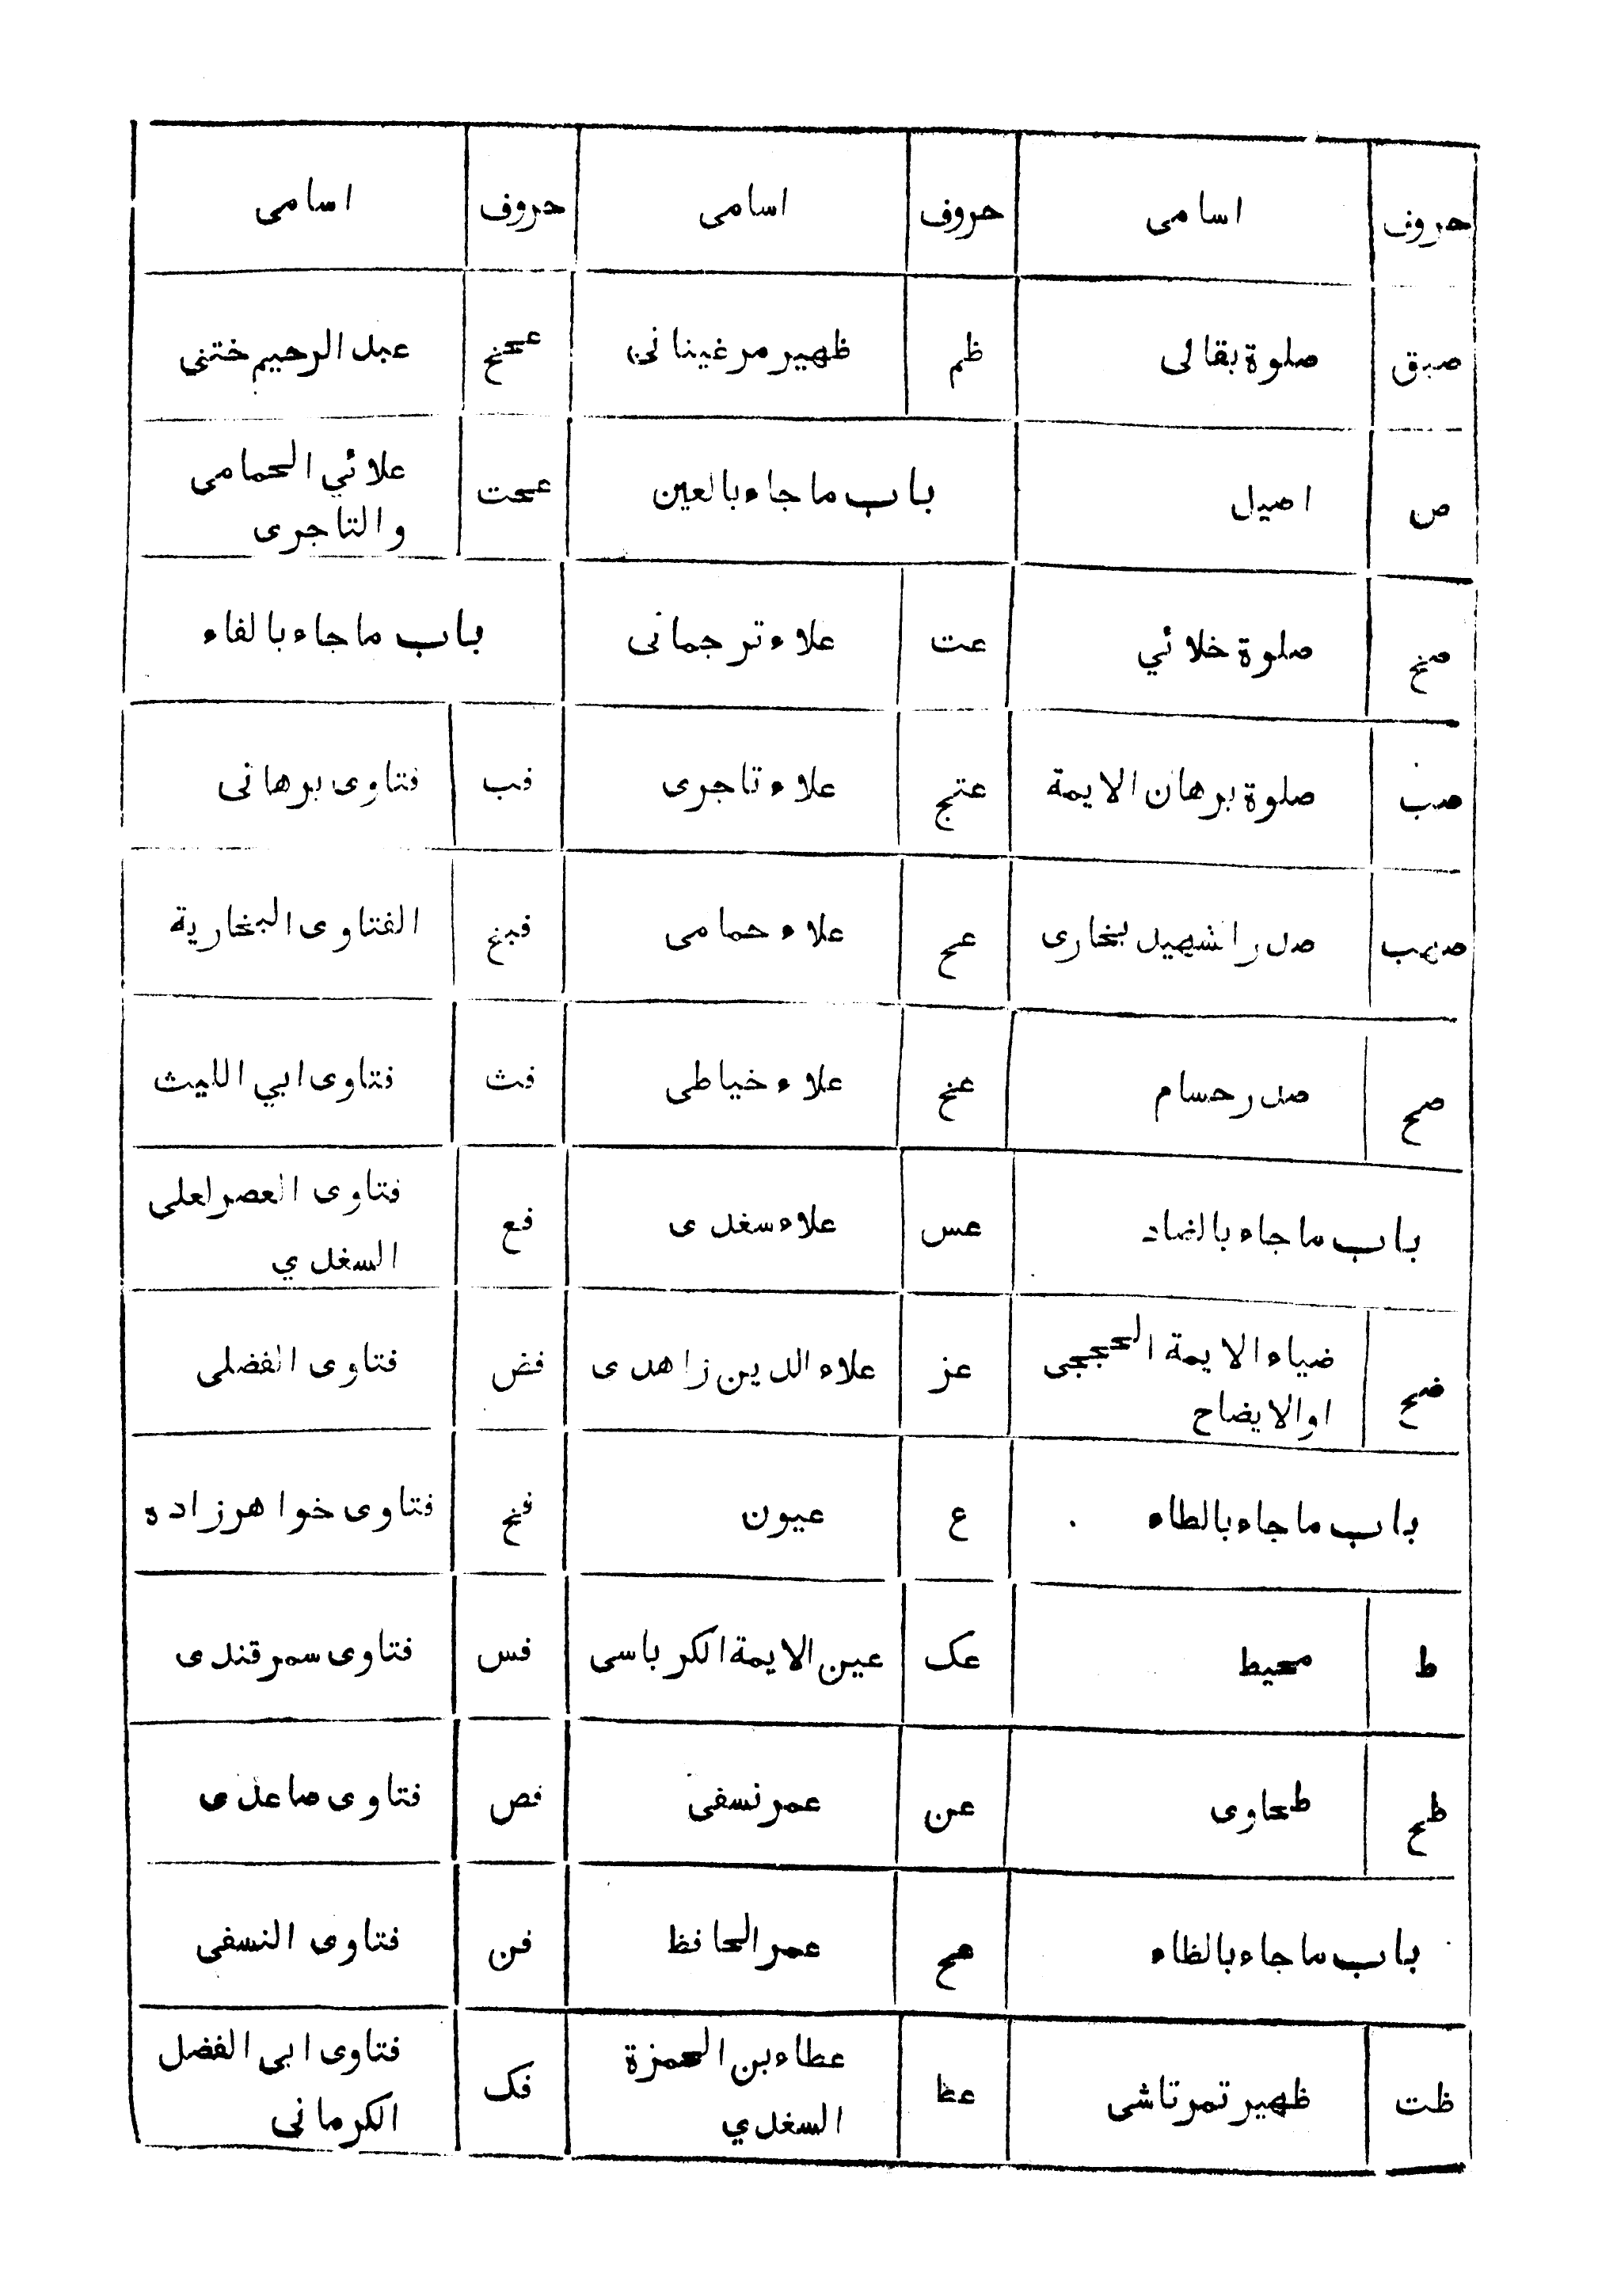 حروف اسامی حروف اسامی حروف اسامی
صبق صلوة بقالی ظم ظهیر مرغینانی عخ عبد الرحیم ختنی
ص اصیل باب ماجاء بالعین عحت علائي الحمامی
والتاجری
صخ صلوة خلائي عت علاء ترجمانی باب ماجاء بالفاء
صب صلوة برهان الایمة عتج علاء تاجری فب فتاوی برهانی
صهب صدر الشهید بخاری عح علاء حمامی فبخ الفتاوی البخاریة
صح صدر حسام عخ علاء خیاطی فث فتاوی ابي اللیث
باب ماجاء بالضاد عس علاء سغدی فع فتاوی العصر لعلی
السغدي
ضح ضیاء الایمة الحججی عز علاء الدین زاهدی فض فتاوی الفضلی
او الایضاح
باب ماجاء بالطاء ع عیون فخ فتاوی خواهرزاده
ط محیط عک عین الایمة الکرباسی فس فتاوی سمرقندی
طح طحاوی عن عمر نسفی فص فتاوی صاعدی
باب ماجاء بالظاء عمر الحافظ فن فتاوی النسفی
ظت ظهیر تمرتاشی عطا عطاء بن الحمزة فک فتاوی ابی الفضل
السغدي الکرمانی